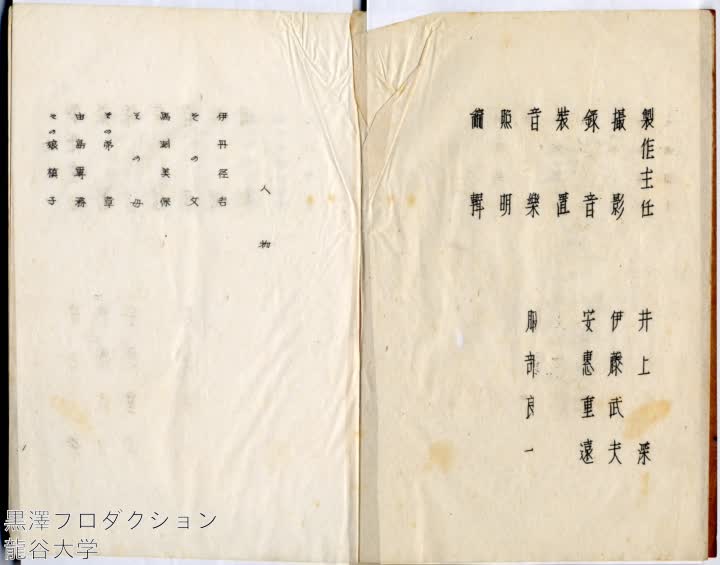 製作主任 井上 深
撮影 伊藤武夫
録音 安惠重遠
装置
音樂 服部良一
照明
人物
その父
馬淵美保
その母
その弟 章
由島專務
その娘槙子
黒澤フロダクション
龍谷大学